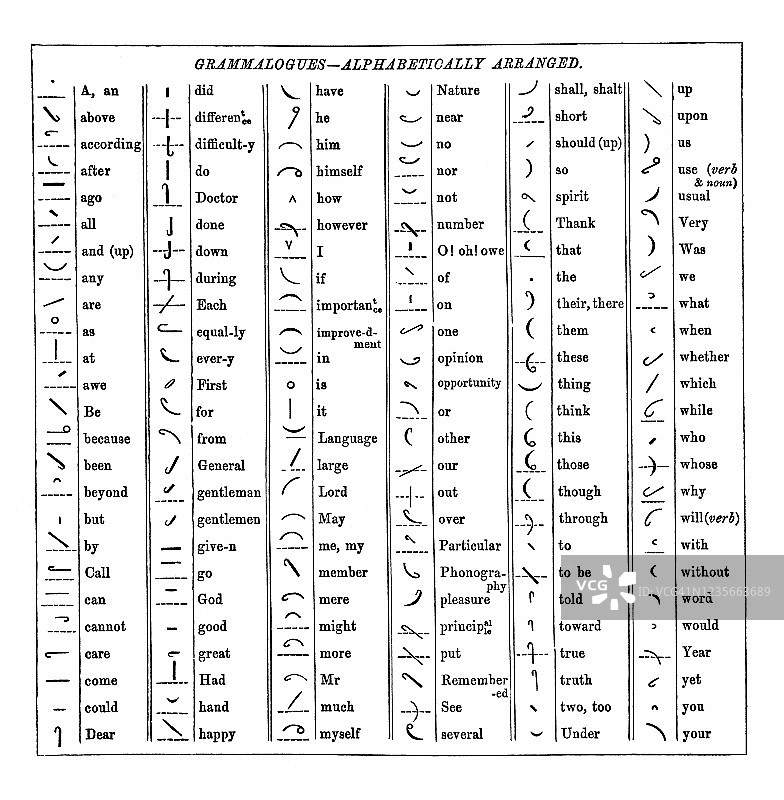 GRAMMALOGUES—ALPHABETICALLY ARRANGED.
A, an
above
according
after
ago
all
and (up)
any
are
as
at
awe
Be
because
been
beyond
but
by
Call
can
cannot
care
come
could
Dear
did
different/ce
difficult-y
do
Doctor
done
down
during
Each
equal-ly
ever-y
First
for
from
General
gentleman
gentlemen
give-n
go
God
good
great
Had
hand
happy
have
he
him
himself
how
however
I
if
important/ce
improve-d-
ment
in
is
it
Language
large
Lord
May
me, my
member
mere
might
more
Mr
much
myself
Nature
near
no
nor
not
number
O! oh! owe
of
on
one
opinion
opportunity
or
other
our
out
over
Particular
Phonogra-
phy
pleasure
principal/le
put
Remember
-ed
See
several
shall, shalt
short
should (up)
so
spirit
Thank
that
the
their, there
them
these
thing
think
this
those
though
through
to
to be
told
toward
true
truth
two, too
Under
up
upon
us
use (verb
& noun)
usual
Very
Was
we
what
when
whether
which
while
who
whose
why
will (verb)
with
without
word
would
Year
yet
you
your
VCG
ID: VCG41N1335663689